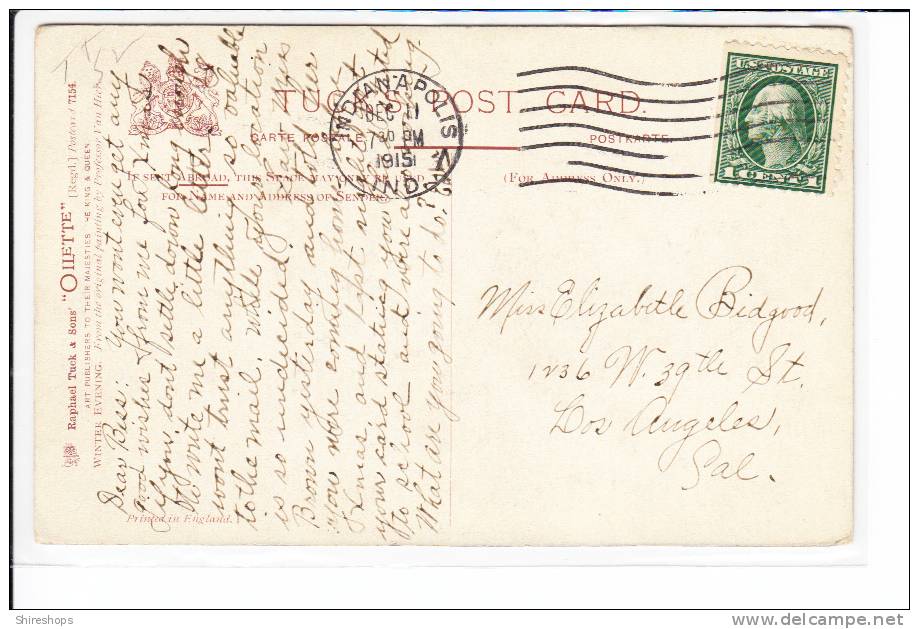 Raphael Tuck & Sons' "OILETTE" [Regd.] Postcard 7154.
ART PUBLISHERS TO THEIR MAJESTIES THE KING & QUEEN.
WINTER EVENING. From the original painting by Professor Van Hier
Printed in England.
TUCK'S POST CARD.
CARTE POSTALE POSTKARTE.
IF SENT ABROAD, THIS SPACE MAY ONLY BE USED
FOR NAME AND ADDRESS OF SENDER.
(FOR ADDRESS ONLY.)
INDIANAPOLIS
DEC 11
7 30 PM
1915
IND.
U.S. POSTAGE
1 CENT 1
Dear Bess: You wont ever get any
good wishes from me for Xmas
if you dont settle down long enough
to write me a little letter. I
wont trust anything so valuable
to the mail, while your location
is so undecided. I had this
Brown yesterday and told her
you were coming home
Xmas, and I got
your card stating you
to school and were
What are you going to do?
Miss Elizabeth Bidgood,
1236 W. 39th St.
Los Angeles,
Cal.
Shireshops
delcampe.net